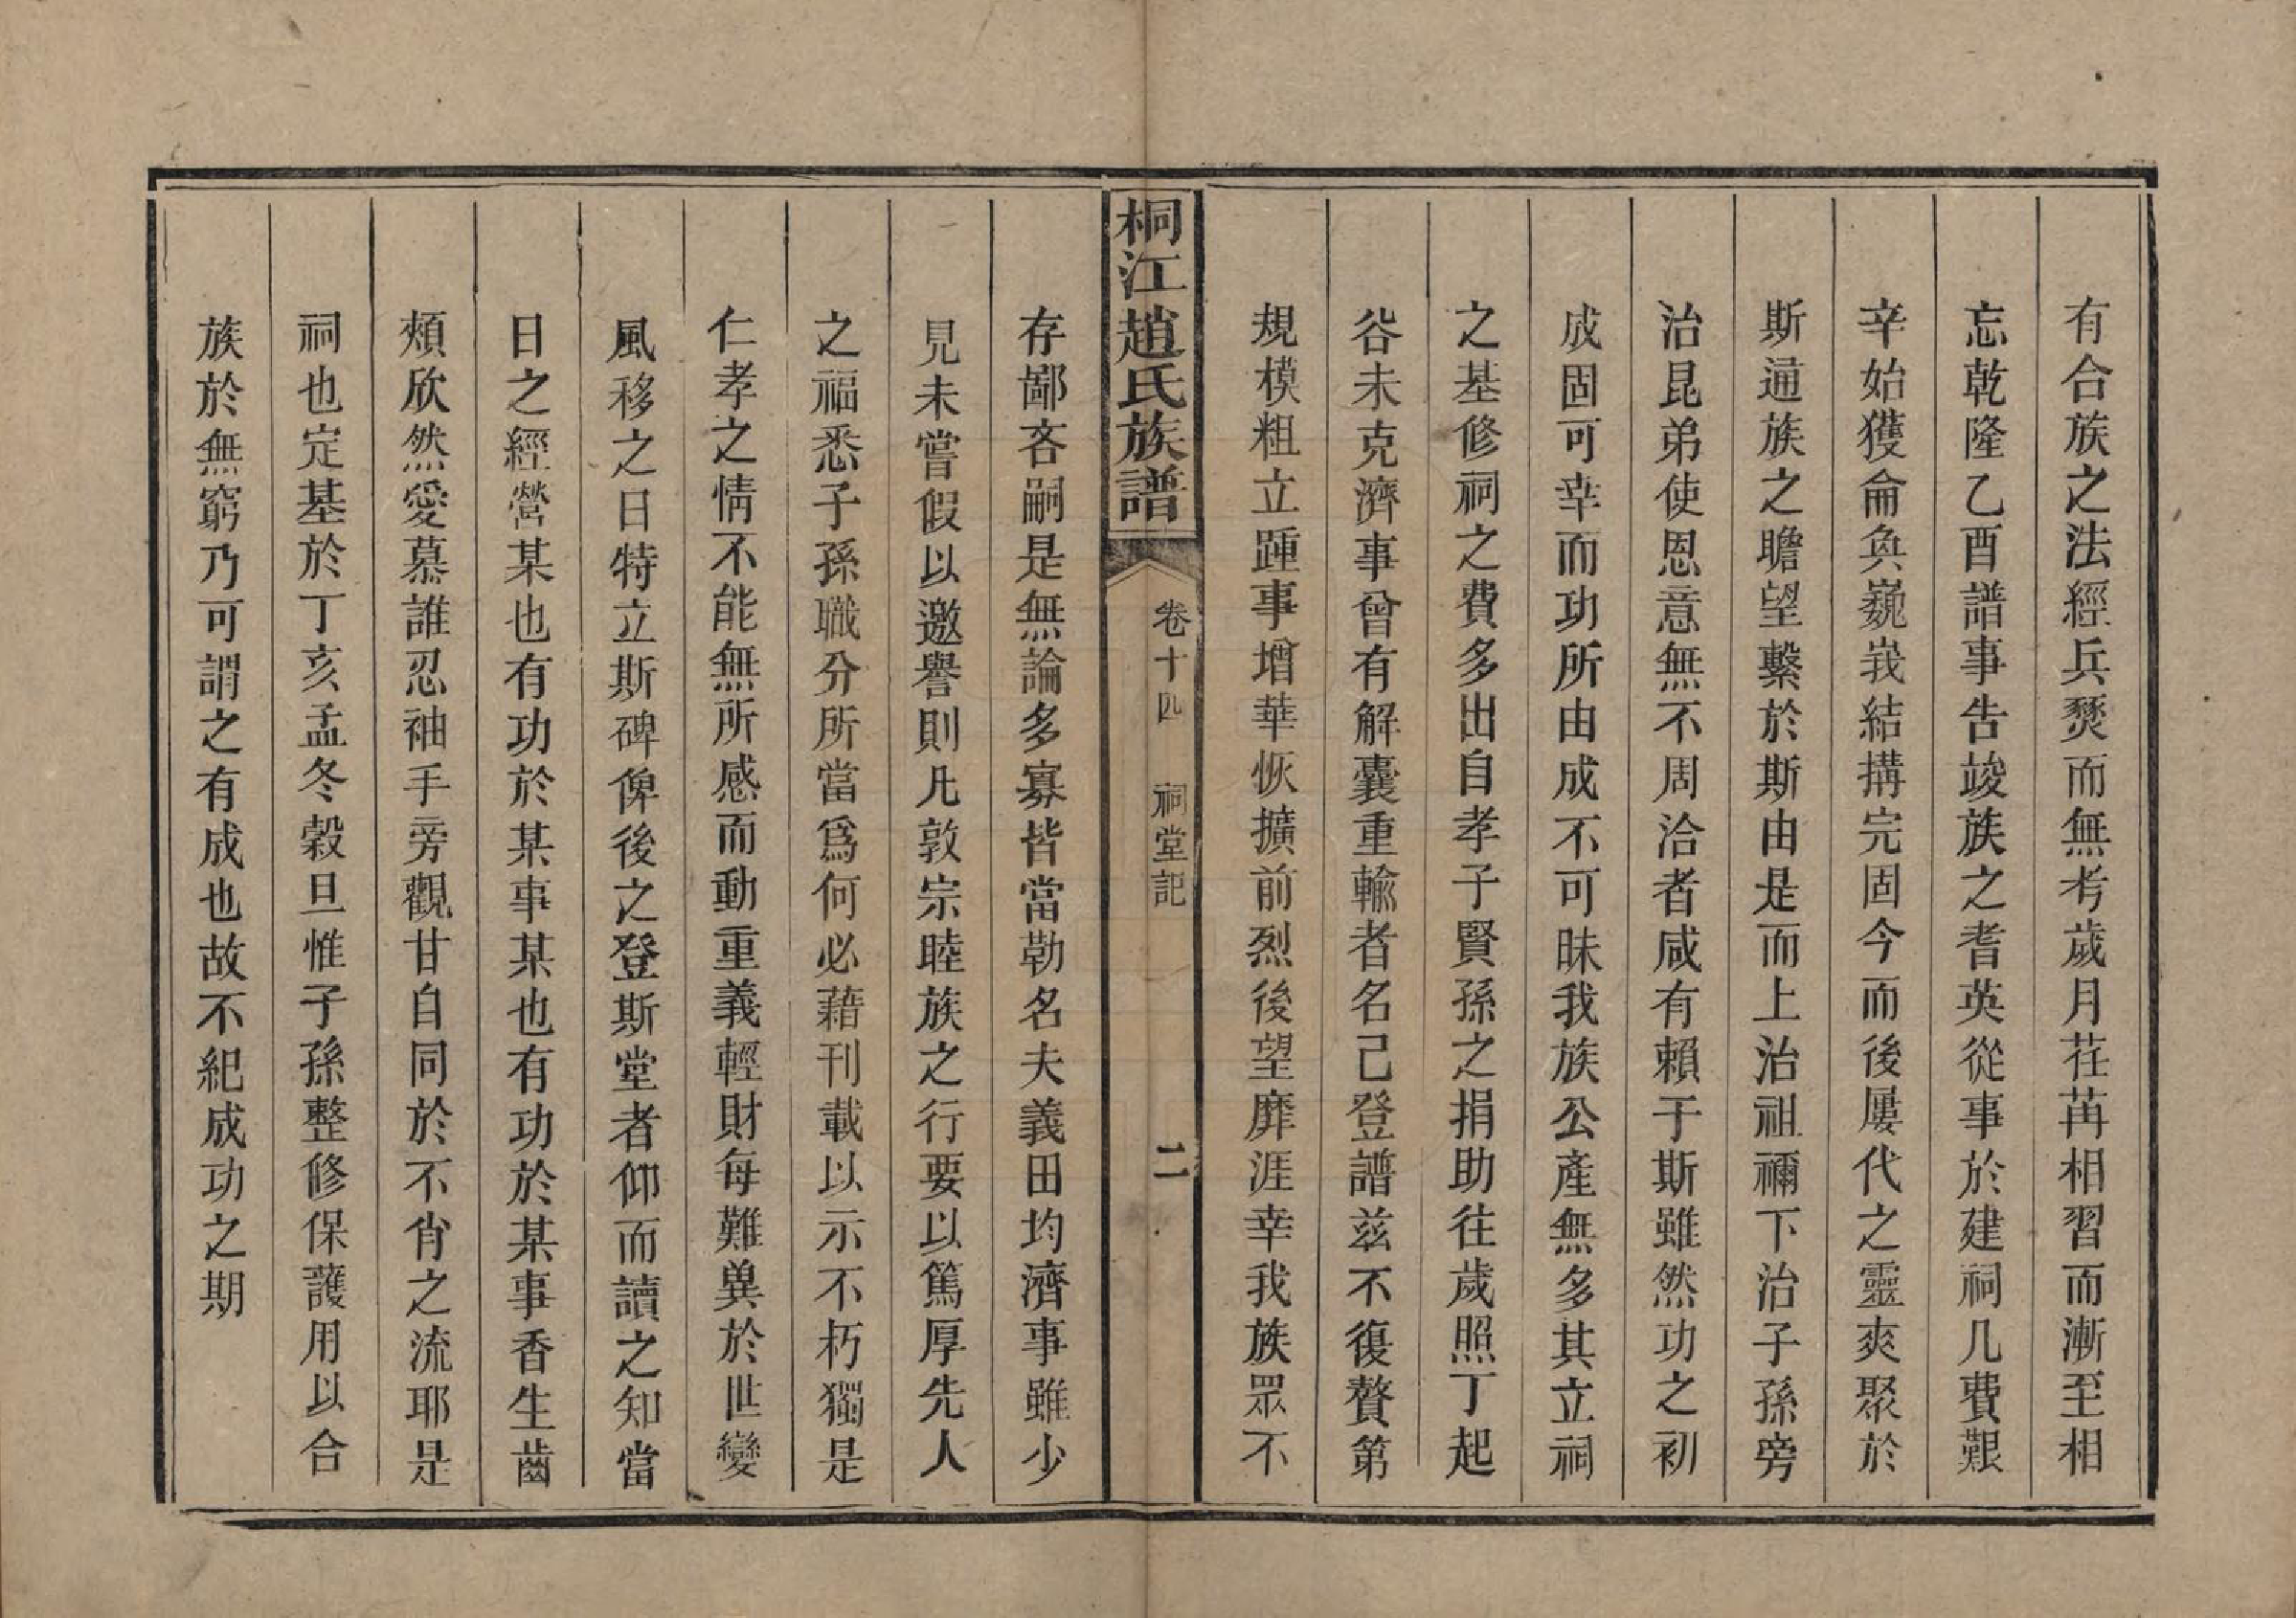 有合族之法經兵燹而無考歲月荏苒相習而漸至相
忘乾隆乙酉譜事告竣族之耆英從事於建祠凡費艱
辛始獲侖奐巍峩結搆完固今而後屢代之靈爽聚於
斯通族之瞻望繫於斯由是而上治祖禰下治子孫旁
治昆弟使恩意無不周洽者咸有賴于斯雖然功之初
成固可幸而功所由成不可昧我族公產無多其立祠
之基修祠之費多出自孝子賢孫之捐助往歲照丁起
谷未克濟事曾有解囊重輸者名已登譜茲不復贅第
規模粗立踵事增華恢擴前烈後望靡涯幸我族眾不
桐江趙氏族譜 卷十四 祠堂記 二
存鄙吝嗣是無論多寡皆當勒名夫義田均濟事雖少
見未嘗假以邀譽則凡敦宗睦族之行要以篤厚先人
之福悉子孫職分所當爲何必藉刊載以示不朽獨是
仁孝之情不能無所感而動重義輕財每難冀於世變
風移之日特立斯碑俾後之登斯堂者仰而讀之知當
日之經營某也有功於某事某也有功於某事香生齒
頰欣然愛慕誰忍袖手旁觀甘自同於不肖之流耶是
祠也定基於丁亥孟冬穀旦惟子孫整修保護用以合
族於無窮乃可謂之有成也故不紀成功之期